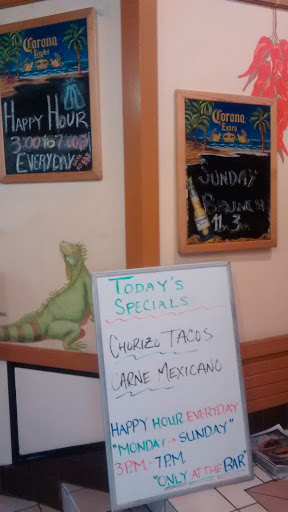 Corona
Light
HAPPY HOUR
3:00 to 7:00
EVERYDAY
Corona
Extra
SUNDAY
BRUNCH
11 3
TODAY'S
SPECIALS
CHORIZO TACOS
CARNE MEXICANO
HAPPY HOUR EVERYDAY
"MONDAY → SUNDAY"
3P.M.-7P.M.
"ONLY AT THE BAR"